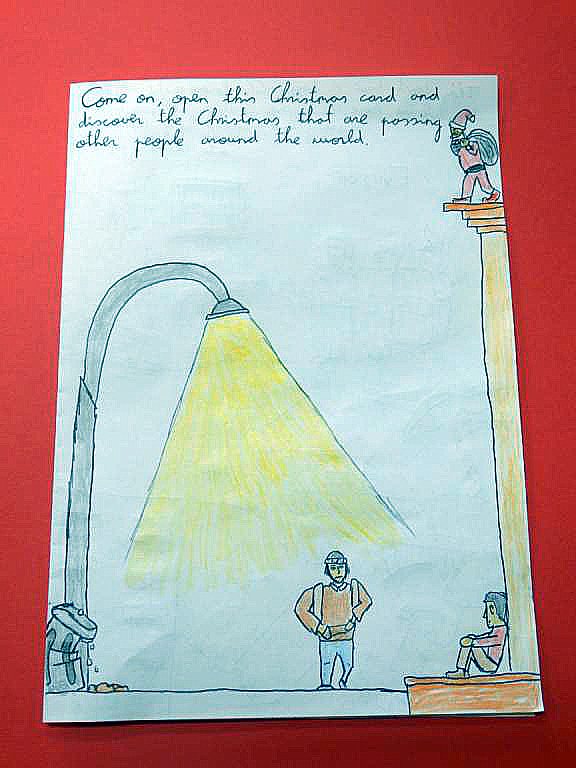 Come on, open this Christmas card and
discover the Christmas that are passing
other people around the world.